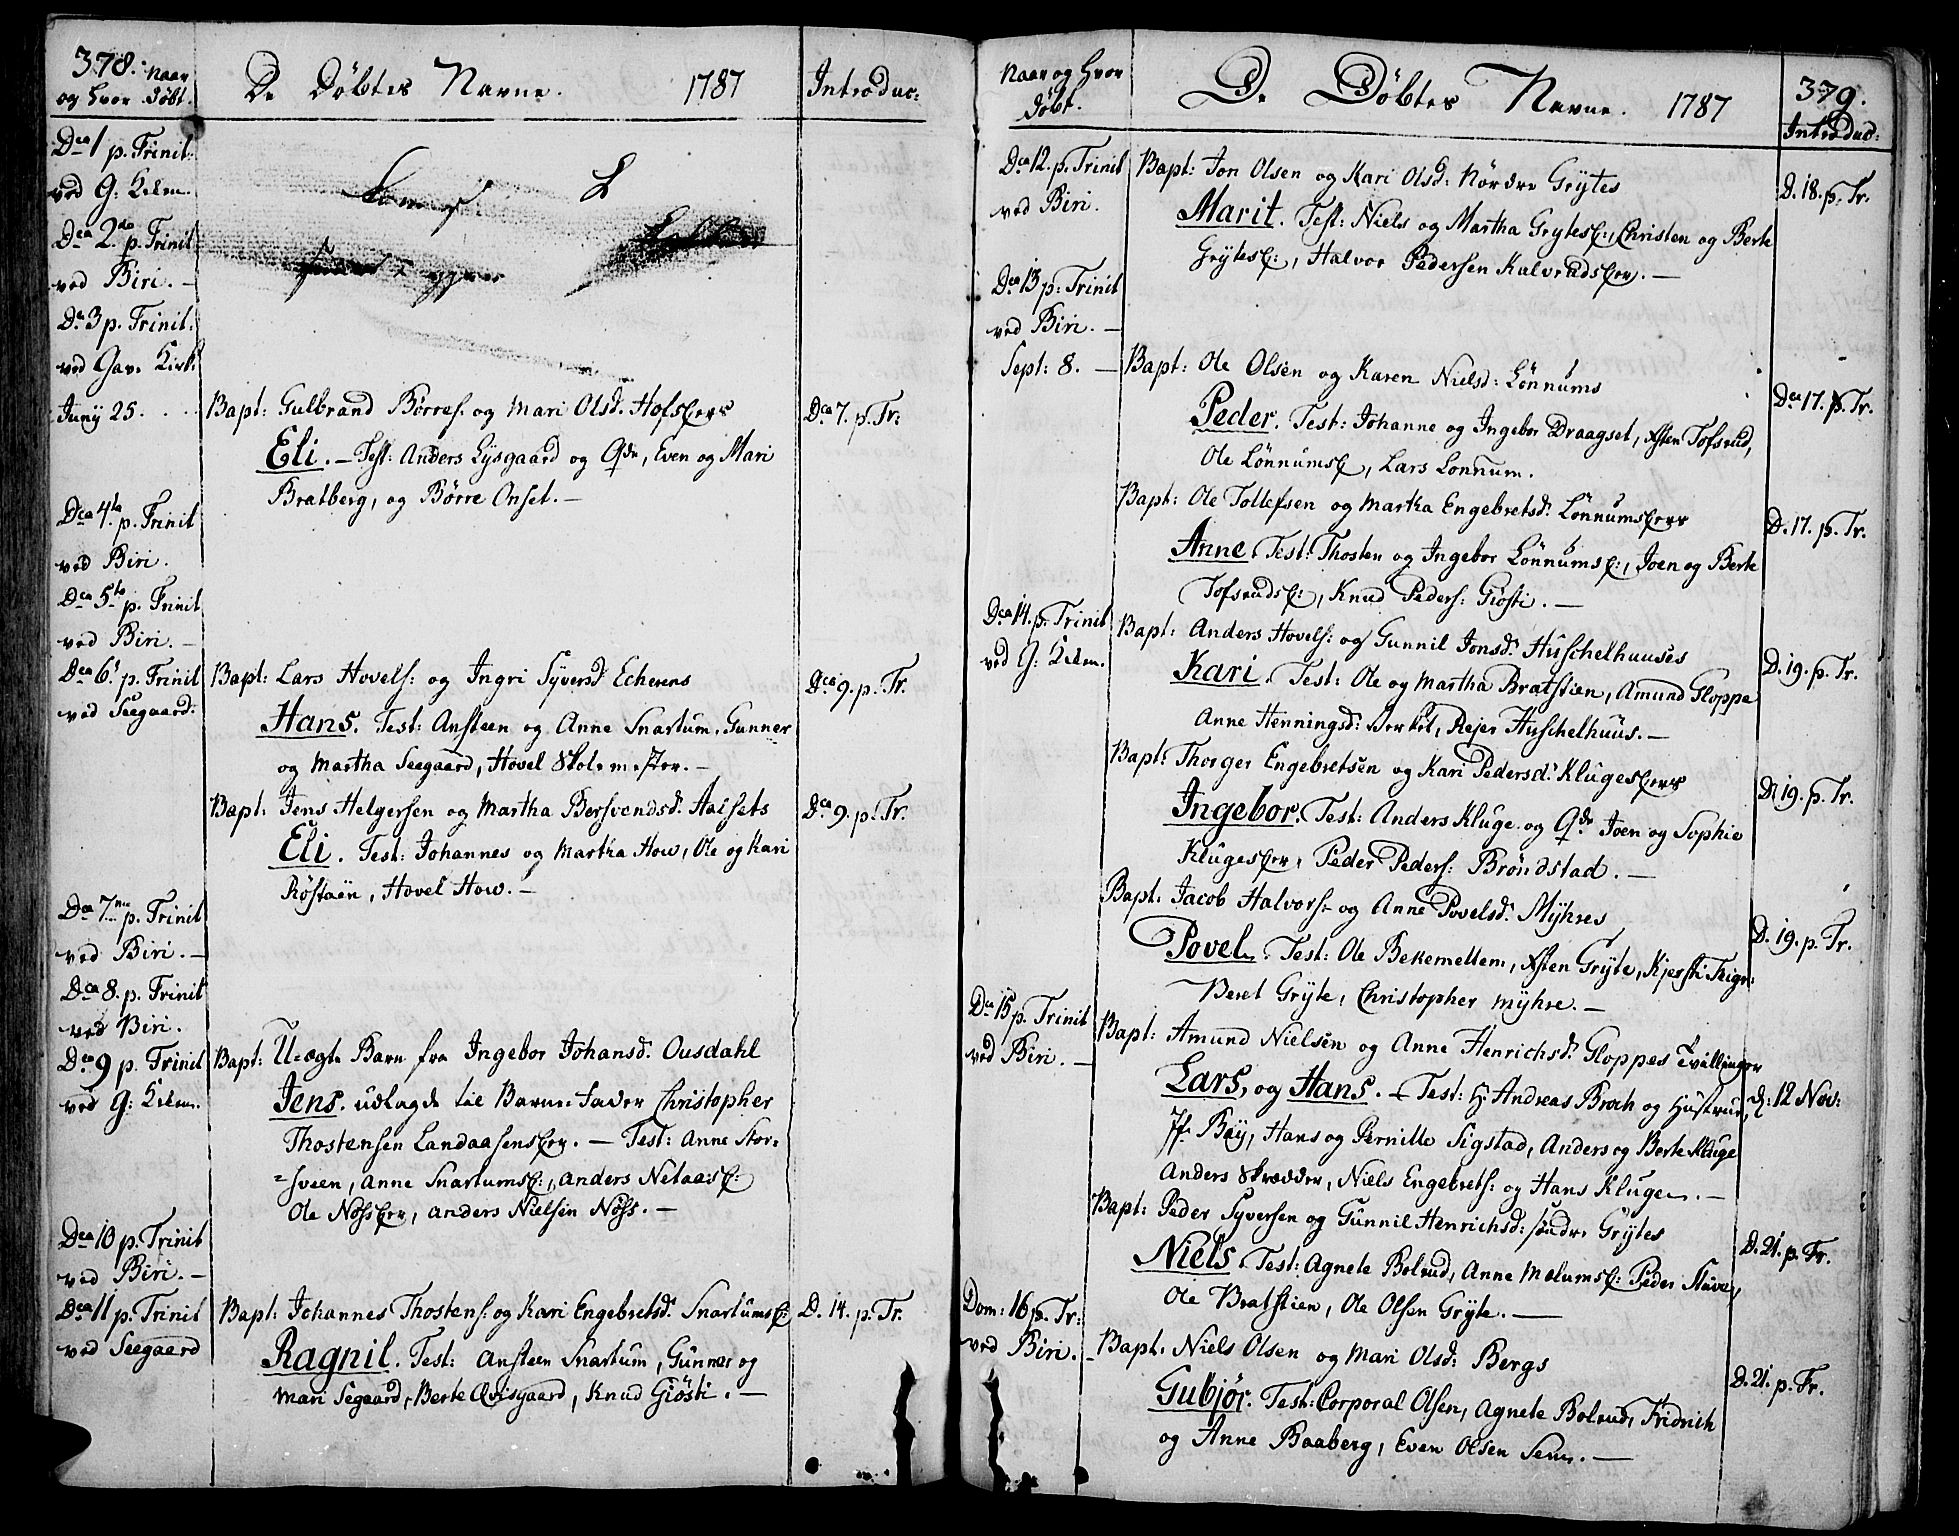 378. Naar
og hvor Døbt.
De Døbtes Navne. 1787
Introduc:
Dca 1 p. Trinit:
ved G: Kirken.
Dca 2do p. Trinit
ved Biri. —
Dca 3 p. Trinit:
ved Gav. Kirk:
Juny 25. . .
Bapt: Gulbrand Børres. og Mari Olsd. Hofs
Dca 7. p. Tr:
Eli. — Test: Anders Lysgaard og Qde, Even og Mari
Bratberg, og Børre Onset. —
Dca 4ta p. Trinit
ved Biri.
Dca 5to p. Trinit
ved Biri. —
Dca 6t p. Trinit
ved Seegaard:
Bapt: Lars Hovels: og Ingri Syversd Echerens
Dca 9. p. Tr.
Hans. Test: Ansteen og Anne Snartum, Gunner
og Martha Seegaard, Hovel Skolemester. —
Bapt: Jens Helgersen og Martha Bersvendsd. Aalsets
Dca 9. p. Tr.
Eli. Test: Johannes og Martha How, Ole og Kari
Røstøen, Hovel How. —
Dca 7me p. Trinit
ved Biri. —
Dca 8. p. Trinit
ved Biri.
Dca 9 p. Trinit
ved G: Kirken.
Bapt: Uægte Barn fra Ingebor Johansd. Ousdahl
Jens. udlagde til Barne-Fader Christopher
Thostensen Landaasens. — Test: Anne Stor-
=sveen, Anne Snartums, Anders Netaas
Ole Nøss, Anders Nielsen Nøss. —
Dca 10 p. Trinit
ved Biri. —
Dca 11 p. Trinit
ved Seegaard
Bapt: Johannes Thostens: og Kari Engebretsd. Snartums
D. 14. p. Tr.
Ragnil. Test: Ansteen Snartum, Gunner og
Mari Segaard, Berte Qvisgaard, Knud Giøsti. —
Naar og hvor
Døbt.
De Døbtes Navne. 1787
379.
Introduc:
Dca 12. p. Trinit
ved Biri.
Bapt: Jon Olsen og Kari Olsd: Nordre Grytes
D. 18. p. Tr.
Marit. Test: Niels og Martha Grytes, Christen og Berte
Grytes, Halvor Pedersen Kalvruds. —
Dca 13 p: Trinit
ved Biri. —
Sept: 8. —
Bapt: Ole Olsen og Karen Nielsd: Lønnums
Dca 17. p. Tr.
Peder. Test: Johanne og Ingebor Draagset, Asten Tofsrud,
Ole Lønnums, Lars Lonnum.
Bapt: Ole Tollefsen og Martha Engebretsd. Lønnums
D. 17. p. Tr.
Anne. Test: Thosten og Ingebor Lønnums, Joen og Berte
Tofsruds, Knud Peders: Giøsti. —
Dca 14. p. Trinit
ved G: Kirken.
Bapt: Anders Hovels: og Gunnil Jonsd. Huschelhuuses
D. 19. p. Tr.
Kari. Test: Ole og Martha Bratstien, Amund Gloppe
Anne Henningsd: , Rejer Huschelhuus. —
Bapt: Thorger Engebretsen og Kari Pedersd. Kluges
D. 19. p. Tr.
Ingebor. Test: Anders Kluge og Qde Joen og Sophie
Kluges, Peder Peders: Brøndstad. —
Bapt. Jacob Halvors. og Anne Povelsd. Myhres
D. 19. p. Tr.
Povel. Test: Ole Bekemellem, Asten Gryte, Kjersti
Beret Gryte, Christopher Myhre. —
Dca 15 p. Trinit
ved Biri. —
Bapt: Amund Nielsen og Anne Henrichsd. Gloppes Tvillinger
Lars, og Hans. — Test: Hr. Andreas Broch og Hustrue,
d: 12 Nov:
Jfr. Bay, Hans og Pernille Sigstad, Anders og Berte Kluge
Anders Skredder, Niels Engebrets: og Hans Klugen. —
Bapt: Peder Syversen og Gunnil Henrichsd: søndre Grytes
D. 21. p. Tr.
Niels. Test: Agnete Bolrud, Anne Melums Peder Stave,
Ole Bratstien, Ole Olsen Gryte. —
Dom: 16 p. Tr:
ved Biri. —
Bapt. Niels Olsen og Mari Olsd: Bergs
D. 21. p. Tr.
Gubjør. Test: Corporal Olsen, Agnete Bolrud, Fridrich
og Anne Baaberg, Even Olsen . —